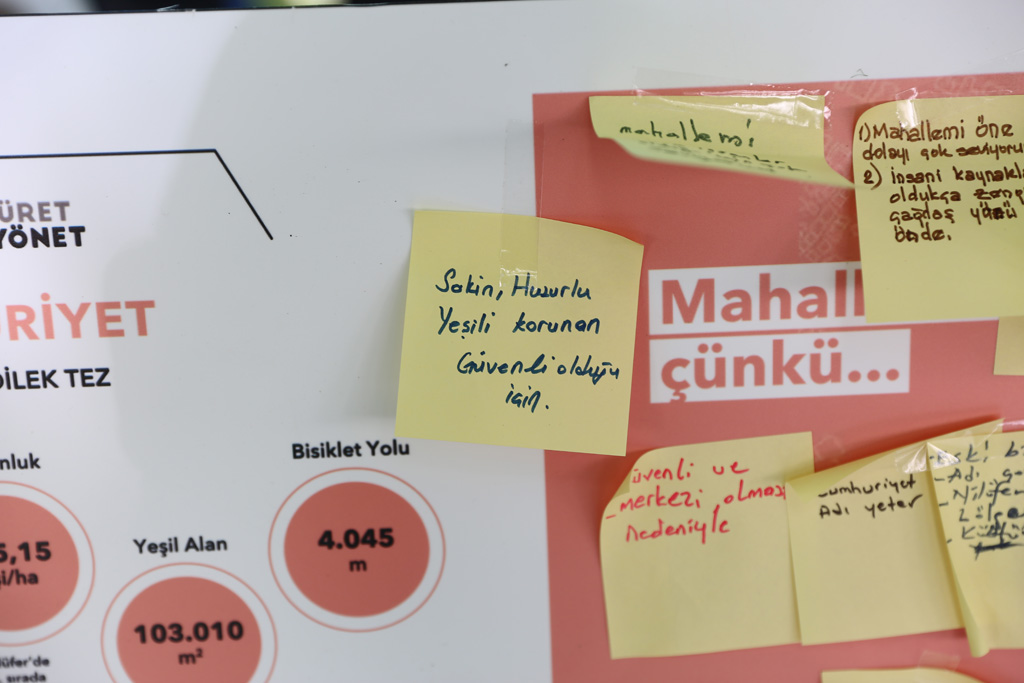 ÜRET
YÖNET
RİYET
DİLEK TEZ
nluk
5,15
şi/ha
lüfer'de
sırada
Yeşil Alan
103.010
m²
Bisiklet Yolu
4.045
m
Sakin, Huzurlu
Yeşili korunan
Güvenli olduğu
için.
mahallemi
1) Mahallemi öne
dolayı çok seviyoru
2) İnsani kaynakla
oldukça zeng
çağdaş yönü
önde.
Mahall
çünkü...
üvenli ve
-merkezi olması
nedeniyle
cumhuriyet
Adı yeter
- Adı
- Nilüfer